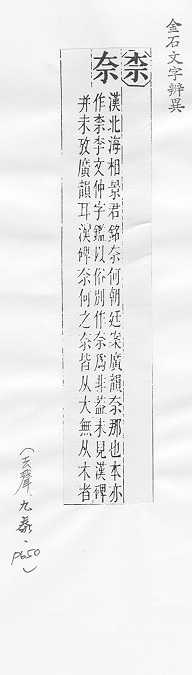 金石文字辨異
柰
奈
漢北海相景君銘奈何朝廷案廣韻奈那也本亦
作柰李文仲字鑑以俗別作奈為非蓋未見漢碑
并未攷廣韻耳漢碑奈何之奈皆从大無从木者
(去聲．九泰．P650)